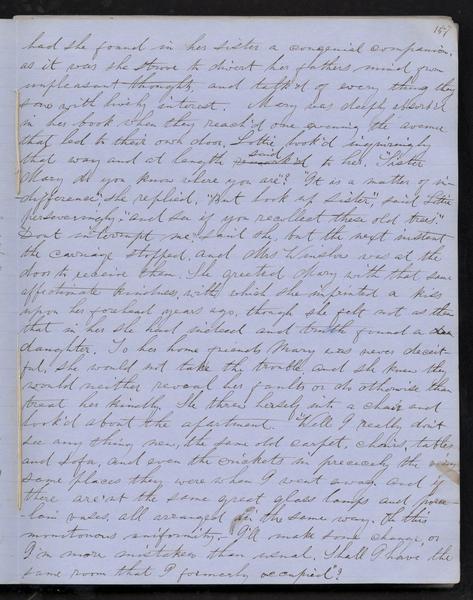 157
had she found in her sister a congenial companion,
as it was she strove to divert her fathers mind from
unpleasant thoughts, and talk'd of every thing they
saw with lively interest. Mary was deeply absorb'd
in her book when they reach'd one evening the avenue
that led to their own door, Lottie look'd inquiringly
that way and at length said to her. "Sister
Mary do you know where you are?" "It is a matter of in-
difference", she replied, "But look up Sister", said Lottie
perseveringly, "and see if you recollect these old trees"
Dont interrupt me, said she, but the next instant
the carriage stopped, and Mrs Winslow was at the
door to receive them. She greeted Mary with that same
affectionate kindness, with which she imprinted a kiss
upon her forhead years ago, though she felt not as then
that in her she had indeed and truth found a
daughter. To her home friends Mary was never deceit-
ful, she would not take the trouble and she knew they
would neither reveal her faults or do otherwise than
treat her kindly. She threw herself into a chair and
look'd about the apartment. "Well I really don't
see any thing new, the same old carpet, chairs, tables
and sofa, and even the crickets in precicely the very
same places they were when I went away and if
there are'nt the same great glass lamps and porce-
lain vases, all arranged in the same way. Oh this
monotonous uniformity. I'll make some change, or
I'm more mistaken than usual. Shall I have the
same room that I formerly occupied"?